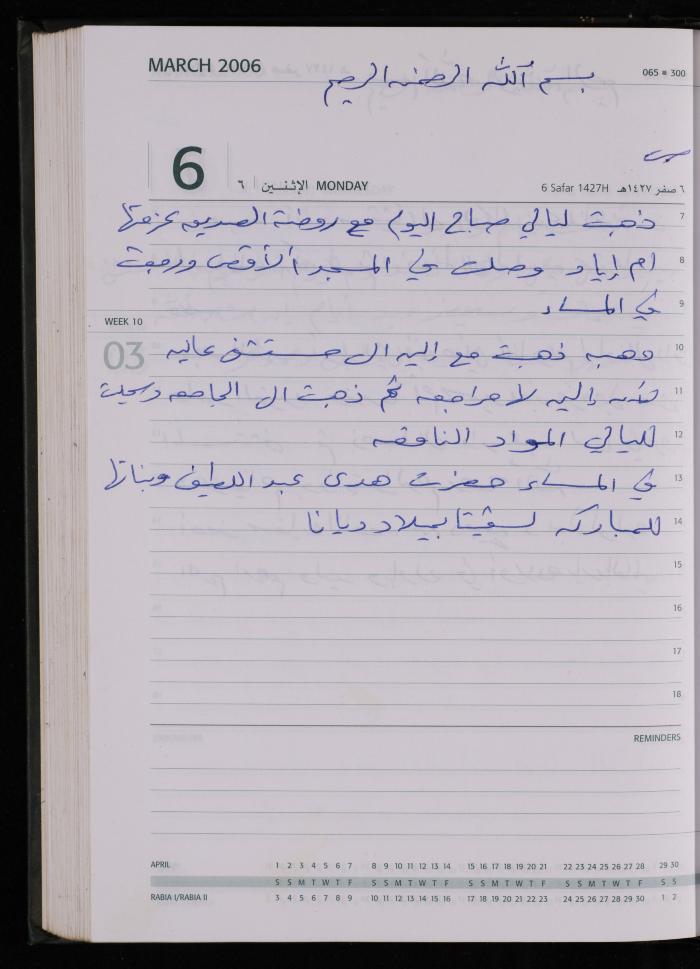 MARCH 2006
بسم الله الرحمن الرحيم
065 ■ 300
6
٦ الإثنين MONDAY
6 Safar 1427H ٦ صفر ١٤٢٧هـ
7 ذهبت ليالي صباح اليوم مع روضة الصديق
8 ام إياد وصلت في المسجد الأقصى ورجعت
9 في المساء
WEEK 10
03
10 وهبه ذهبت مع إليه الى مستشفى عاليه
11 إليه لا مراجعه ثم ذهبت الى الجامعه وسجلت
12 لليالي المواد الناقصه
13 في المساء حضرت هدى عبد اللطيف وبناتها
14 للمباركه بميلاد ديانا
15
16
17
18
REMINDERS
APRIL 1 2 3 4 5 6 7 8 9 10 11 12 13 14 15 16 17 18 19 20 21 22 23 24 25 26 27 28 29 30
S S M T W T F S S M T W T F S S M T W T F S S M T W T F S S
RABIA I/RABIA II 3 4 5 6 7 8 9 10 11 12 13 14 15 16 17 18 19 20 21 22 23 24 25 26 27 28 29 30 1 2